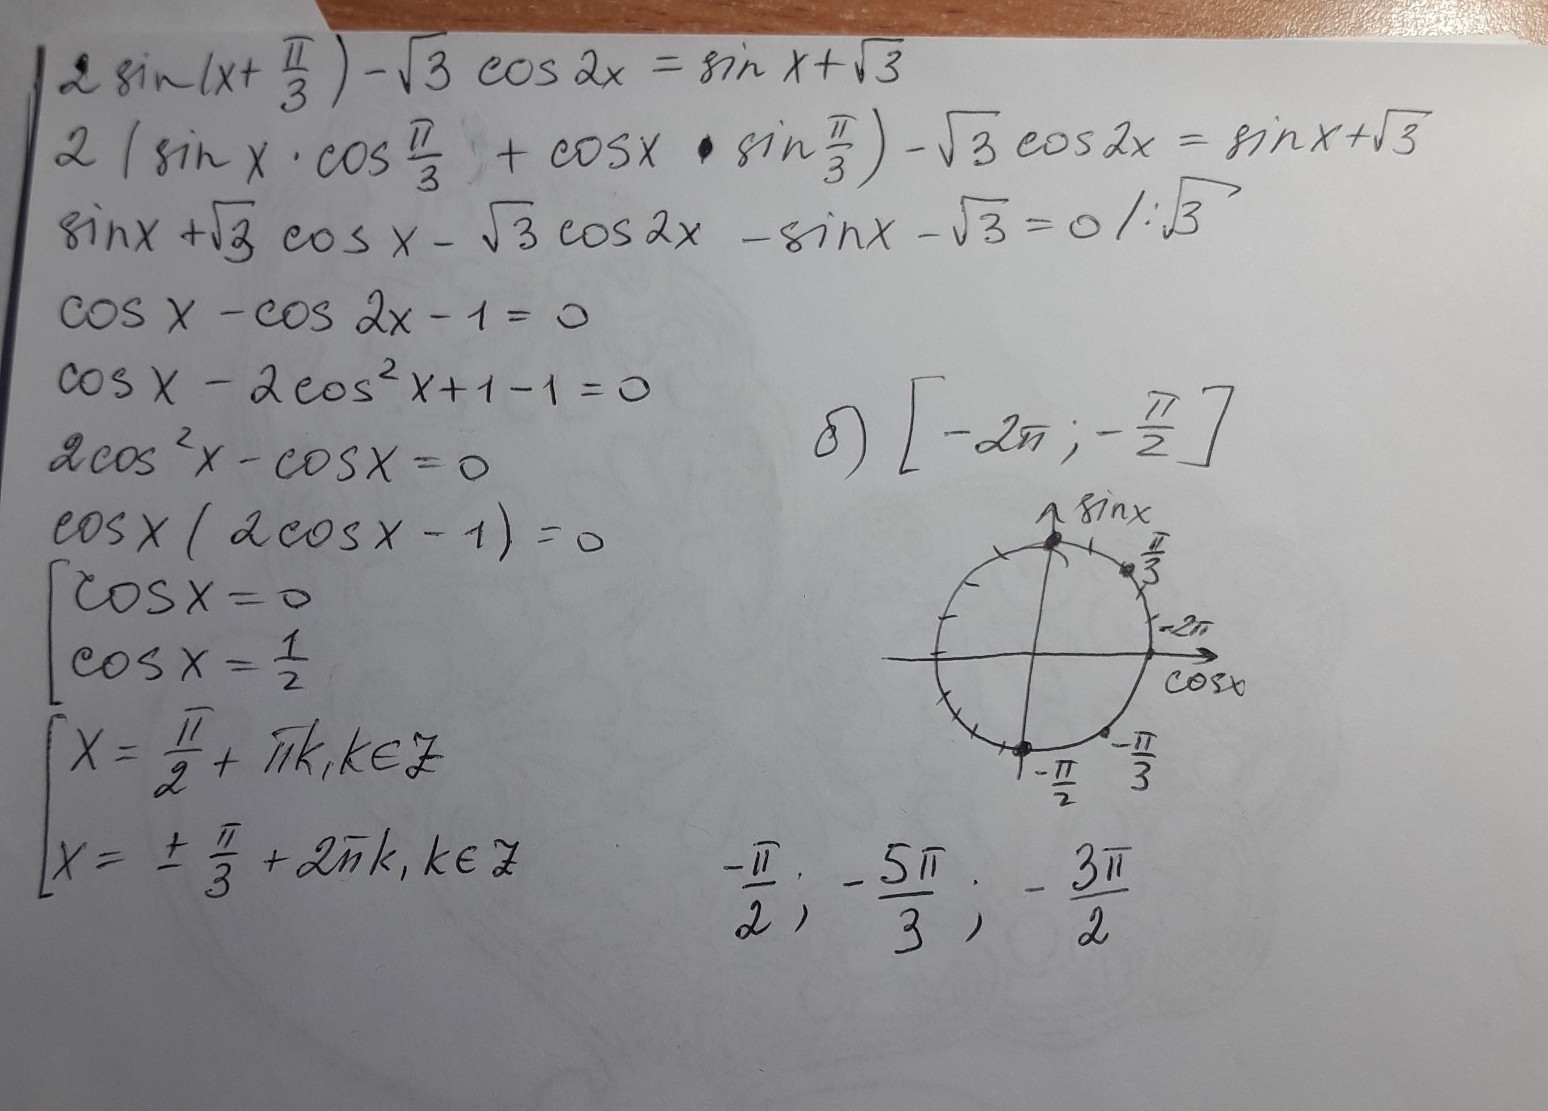 2 sin(x + π/3) - √3 cos 2x = sin x + √3
2 (sin x · cos π/3 + cos x · sin π/3) - √3 cos 2x = sin x + √3
sin x + √3 cos x - √3 cos 2x - sin x - √3 = 0 /:√3
cos x - cos 2x - 1 = 0
cos x - 2cos² x + 1 - 1 = 0
2cos² x - cos x = 0
cos x (2cos x - 1) = 0
[ cos x = 0
cos x = 1/2
[ x = π/2 + πk, k ∈ Z
x = ± π/3 + 2πk, k ∈ Z
б) [-2π; -π/2]
sin x
π/3
-2π
cos x
-π/3
-π/2
-π/2; -5π/3; -3π/2